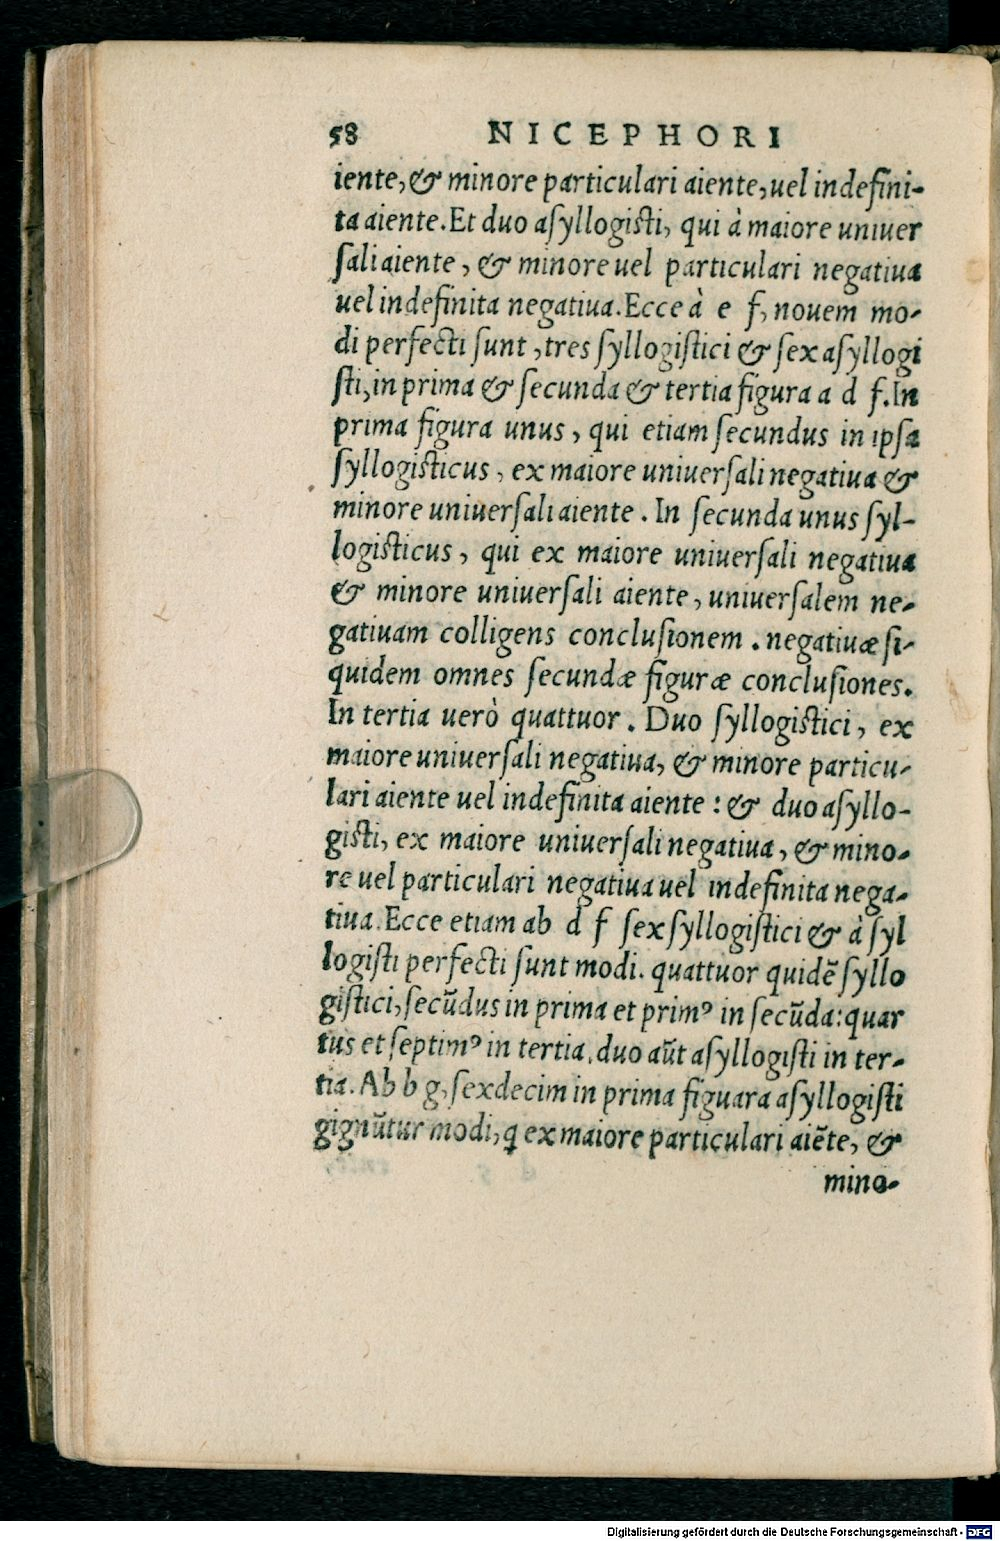 58 NICEPHORI
iente, & minore particulari aiente, uel indefini-
ta aiente. Et duo asyllogisti, qui à maiore uniuer
sali aiente, & minore uel particulari negatiua
uel indefinita negatiua. Ecce à e f, nouem mo-
di perfecti sunt, tres syllogistici & sex asyllogi
sti, in prima & secunda & tertia figura a d f. In
prima figura unus, qui etiam secundus in ipsa
syllogisticus, ex maiore uniuersali negatiua &
minore uniuersali aiente. In secunda unus syl-
logisticus, qui ex maiore uniuersali negatiua
& minore uniuersali aiente, uniuersalem ne-
gatiuam colligens conclusionem. negatiuæ si-
quidem omnes secundæ figuræ conclusiones.
In tertia uerò quattuor. Duo syllogistici, ex
maiore uniuersali negatiua, & minore particu-
lari aiente uel indefinita aiente: & duo asyllo-
gisti, ex maiore uniuersali negatiua, & mino-
re uel particulari negatiua uel indefinita nega-
tiua. Ecce etiam ab d f sex syllogistici & à syl
logisti perfecti sunt modi. quattuor quidē syllo
gistici, secūdus in prima et primꝰ in secūda: quar
tus et septimꝰ in tertia. duo aūt asyllogisti in ter-
tia. Ab b g, sexdecim in prima figuara asyllogisti
gignūtur modi, q ex maiore particulari aiēte, &
mino-
Digitalisierung gefördert durch die Deutsche Forschungsgemeinschaft - DFG